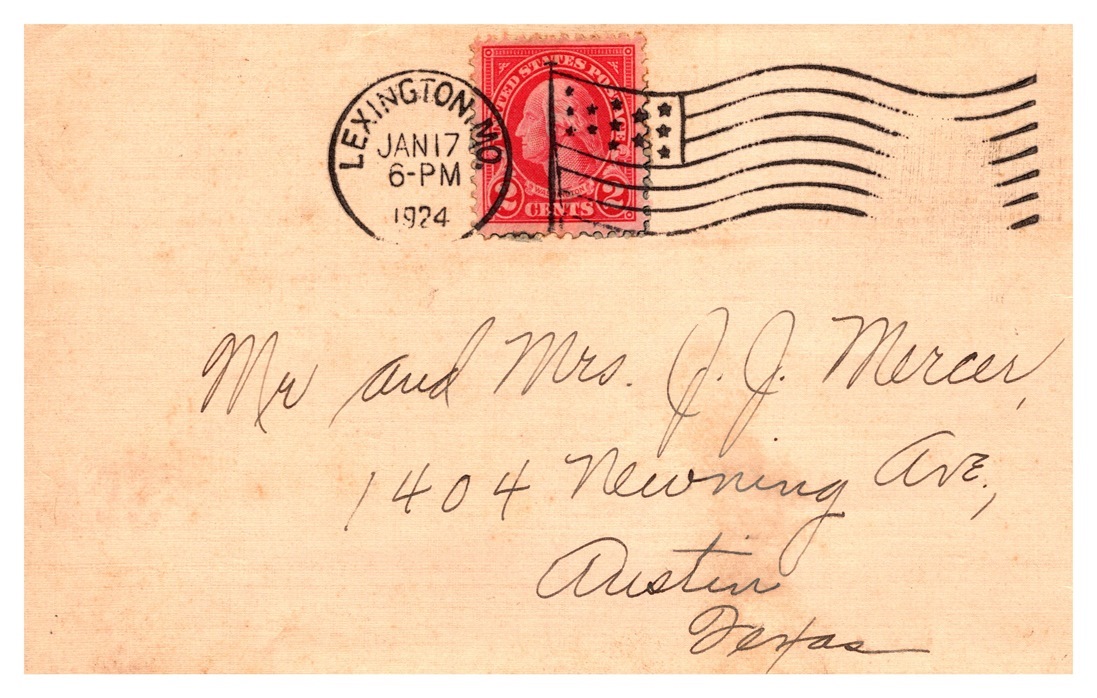 LEXINGTON, MO.
JAN 17
6-PM
1924
UNITED STATES POSTAGE
WASHINGTON
2 CENTS 2
Mr and Mrs. J. J. Mercer,
1404 Newning Ave.,
Austin
Texas